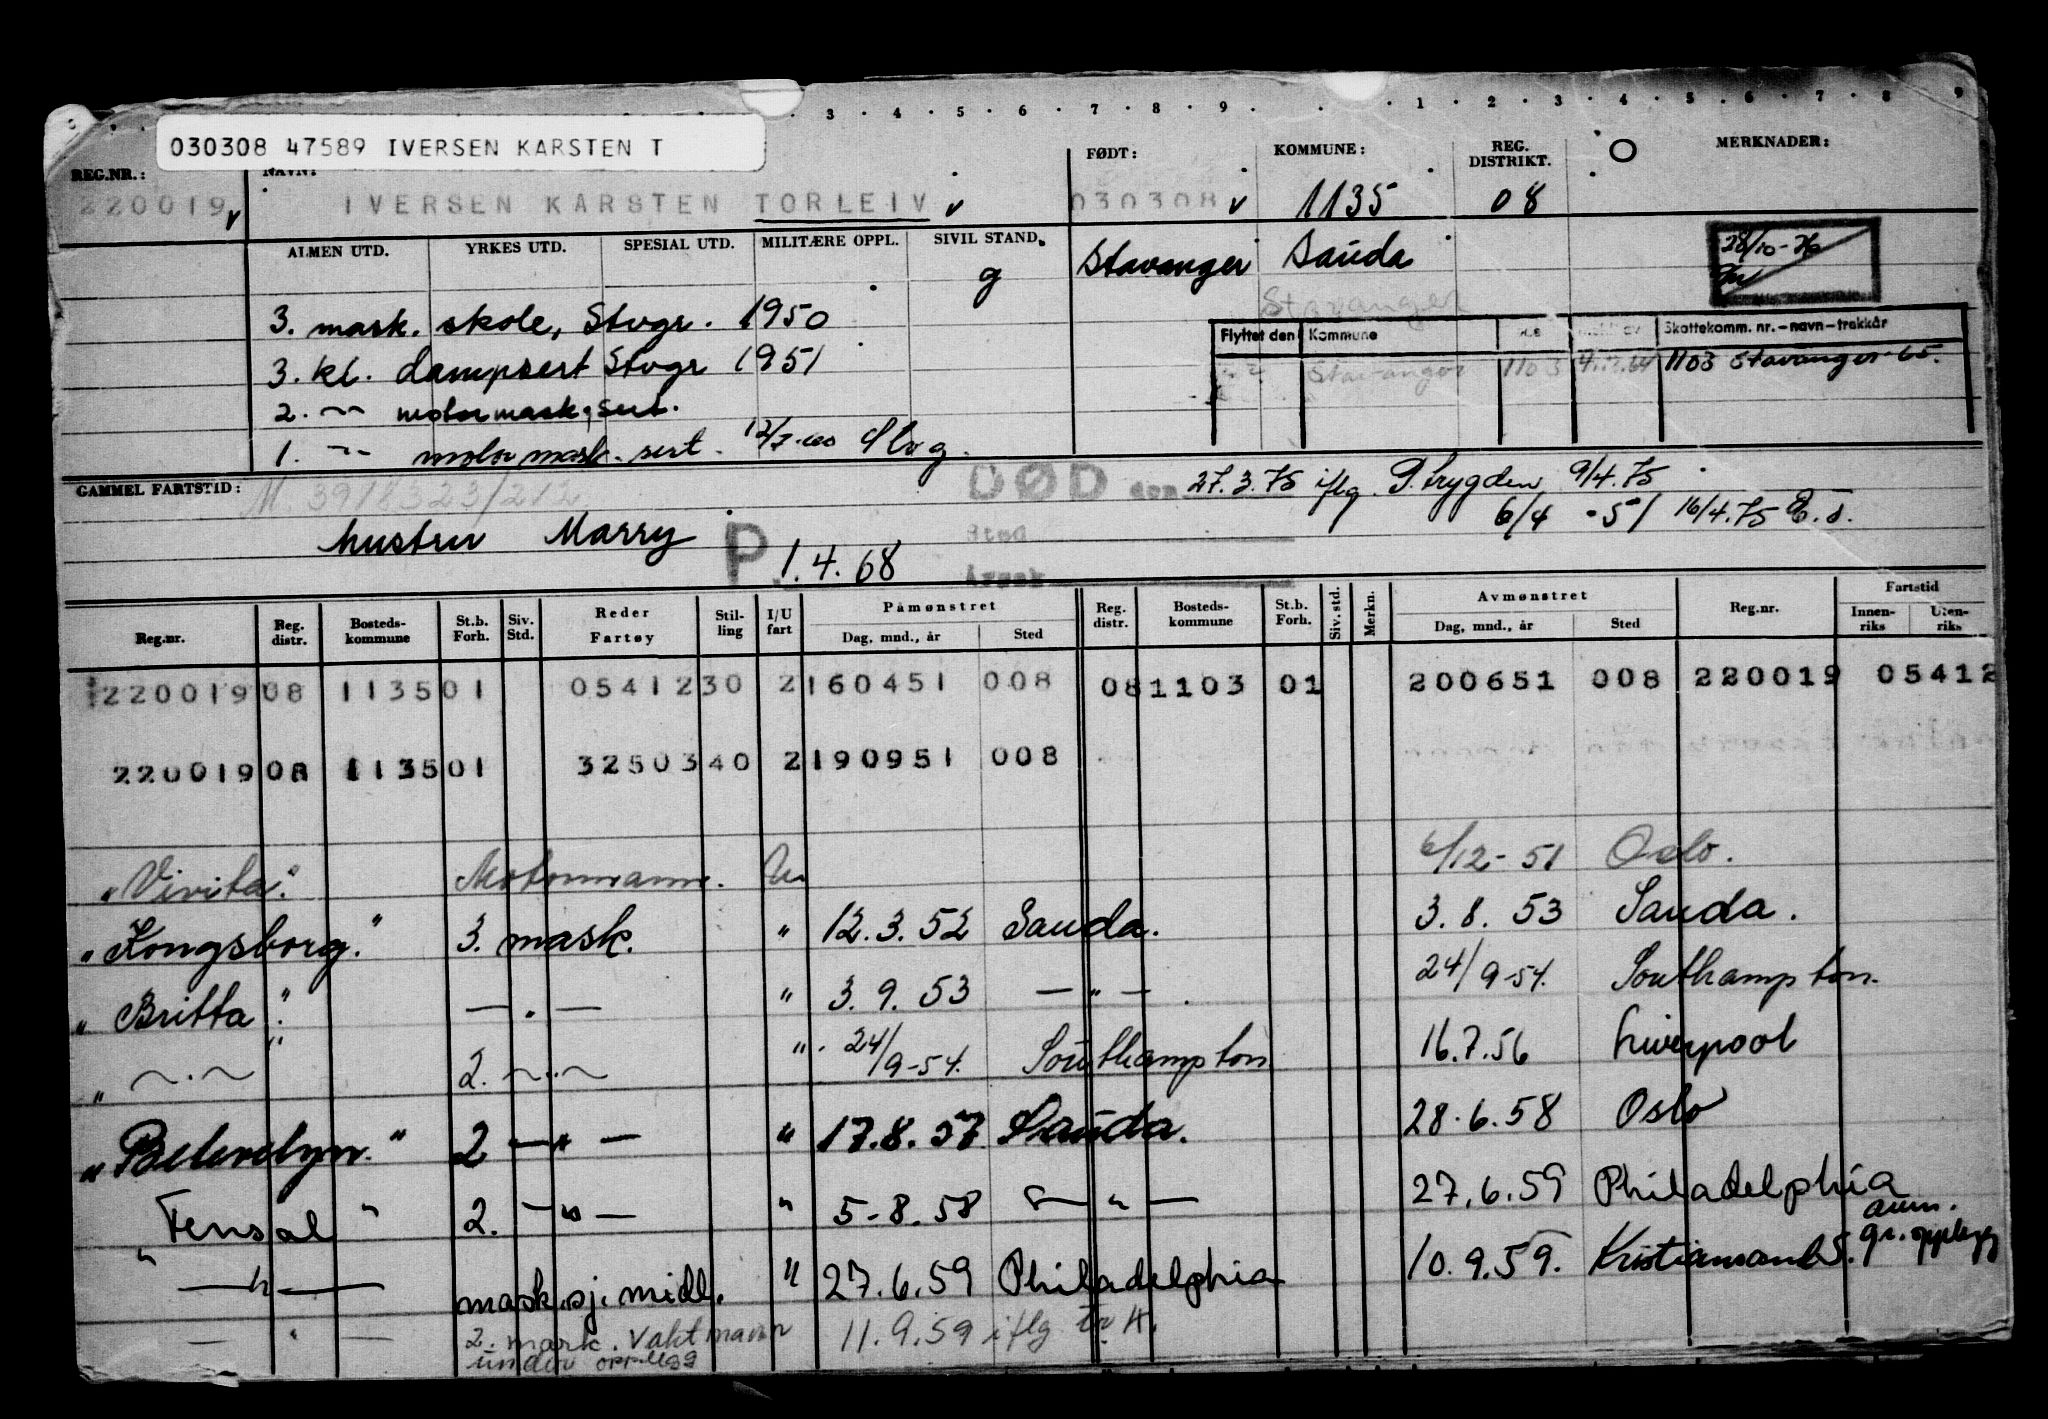 3 4 5 6 7 8 9 1 2 3 4 5 6 7 8 9
030308 47589 IVERSEN KARSTEN T
REG.NR.: NAVN: FØDT: KOMMUNE: REG. DISTRIKT. O MERKNADER:
220019 v IVERSEN KARSTEN TORLEIV v 030308 v 1135 08
ALMEN UTD. YRKES UTD. SPESIAL UTD. MILITÆRE OPPL. SIVIL STAND.
g Stavanger Sauda 28/10-76
Stavanger
3. mask. skole, Stvgr. 1950
Flyttet den Kommune Skattekomm. nr.-navn-trekkår
3. kl. dampsert Stvgr 1951
Stavanger 1103 1103 Stavanger 65.
2. —"— motormask. sert.
1. —"— motormask. sert. Stvg.
GAMMEL FARTSTID: M. 3918323/212 DØD den 27.3.75 iflg. P.trygden 9/4.75
6/4 -51 16/4.75
hustru Marry P 1.4.68 Sted
Årsak
Reg.nr. Reg. distr. Bosteds- kommune St.b. Forh. Siv. Std. Reder Fartøy Stil- ling I/U fart Påmønstret Dag, mnd., år Sted Reg. distr. Bosteds- kommune St.b. Forh. Siv. std. Merkn. Avmønstret Dag, mnd., år Sted Reg.nr. Fartstid Innen- riks Uten- riks
220019 08 1135 01 05412 30 2 160451 008 08 1103 01 200651 008 220019 05412
220019 08 1135 01 32503 40 2 190951 008
"Vivita". Motormann. U 6/12-51 Oslo.
"Kongsborg." 3. mask. " 12.3.52 Sauda. 3.8.53 Sauda.
"Britta". — " — " 3.9.53 — " — . 24/9-54. Southampton.
" —"— " 2. —"— " 24/9-54. Southampton 16.7.56 Liverpool
"Belevelyn." 2 — " — " 17.8.57 Sauda. 28.6.58 Oslo
"Fensal" 2. — " — " 5-8.58 — " — 27.6.59 Philadelphia
— " — mask.sj. midl. " 27.6.59 Philadelphia 10.9.59. Kristiansand S. avm. gr. opplegg
— " — 2. mask. Vaktmann under opplegg 11.9.59 iflg tr. H.